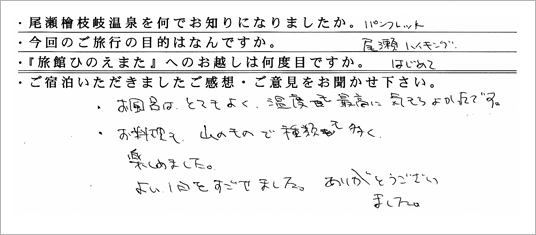 ・尾瀬檜枝岐温泉を何でお知りになりましたか。パンフレット
・今回のご旅行の目的はなんですか。尾瀬ハイキング
・『旅館ひのえまた』へのお越しは何度目ですか。はじめて
・ご宿泊いただきましたご感想・ご意見をお聞かせ下さい。
・お風呂は、とてもよく、温度も最高に気もちよかったです。
・お料理も、山のもので種類も多く、
楽しめました。
よい1日をすごせました。ありがとうござい
ました。